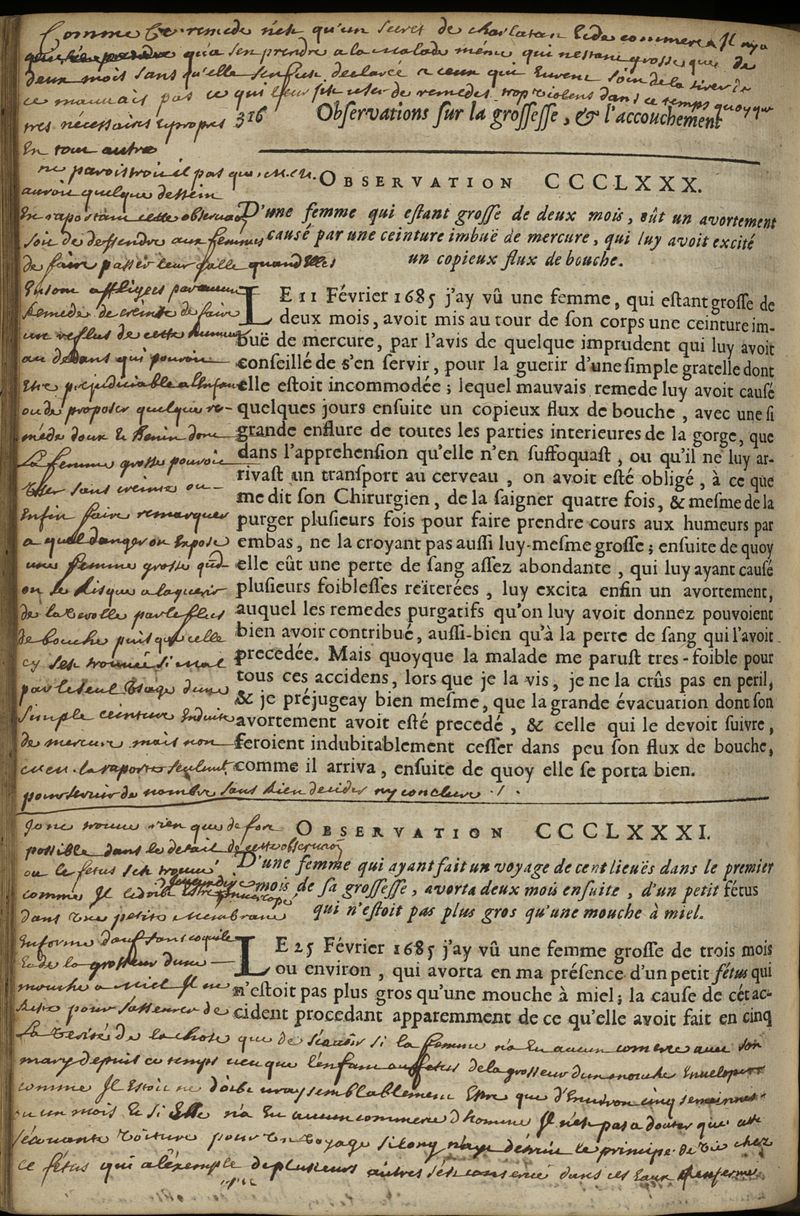 Comme Ce remede n'est qu'un secret de charlatan Et de commere Il n'y a
qu'a s'en prendre a la malade même qui n'estant grosse que de
deux mois sans qu'elle se fust declarée a ceux qui Eurent soin de la tirer de
ce mauvais pas ce qui leur fit user de remedes trop violens dans ce temps quoyque
tres necessaires Et propres
En tout autre
316 Observations sur la grossesse, & l'accouchement
ne paroistroit il pas que M. M.
auroit quelque dessein
En raportant cette observaon
soit de deffendre aux femmes
de faire passer leur galle quand Elles
En sont affligées par aucun
Remede de creinte de faire
un reflus de cette humeur
au dedans qui pouroit
Estre prejudiciable a l'Enfant
ou de proposer quelque re-
mede doux Et Benin dont
La femme grosse pouroit
User sans creinte ou
Enfin faire remarquer
a quel danger on Expose
une femme grosse quand
on se risque a la guerir
de la Verolle par le flus
de bouche puis que celle
cy s'est trouvée si mal
par le seul Usage d'une
simple ceinture Enduite
de mercure mais non
la raporte seulement
pour servir de nombre sans Rien decider ny conclure ./.
OBSERVATION CCCLXXX.
D'une femme qui estant grosse de deux mois, eût un avortement
causé par une ceinture imbuë de mercure, qui luy avoit excité
un copieux flux de bouche.
LE 11 Février 1685 j'ay vû une femme, qui estant grosse de
deux mois, avoit mis au tour de son corps une ceinture im-
buë de mercure, par l'avis de quelque imprudent qui luy avoit
conseillé de s'en servir, pour la guerir d'une simple gratelle dont
elle estoit incommodée; lequel mauvais remede luy avoit causé
quelques jours ensuite un copieux flux de bouche, avec une si
grande enflure de toutes les parties interieures de la gorge, que
dans l'apprehension qu'elle n'en suffoquast, ou qu'il ne luy ar-
rivast un transport au cerveau, on avoit esté obligé, à ce que
me dit son Chirurgien, de la saigner quatre fois, & mesme de la
purger plusieurs fois pour faire prendre cours aux humeurs par
embas, ne la croyant pas aussi luy-mesme grosse; ensuite de quoy
elle eût une perte de sang assez abondante, qui luy ayant causé
plusieurs foiblesses reïterées, luy excita enfin un avortement,
auquel les remedes purgatifs qu'on luy avoit donnez pouvoient
bien avoir contribué, aussi-bien qu'à la perte de sang qui l'avoit
precedée. Mais quoyque la malade me parust tres-foible pour
tous ces accidens, lors que je la vis, je ne la crûs pas en peril,
& je préjugeay bien mesme, que la grande évacuation dont son
avortement avoit esté precedé, & celle qui le devoit suivre,
feroient indubitablement cesser dans peu son flux de bouche,
comme il arriva, ensuite de quoy elle se porta bien.
Je ne trouve rien que de fort
possible dans le detail de cette observaon
ou le fetus s'est trouvé
comme Il
dans Une petite Membrane
Informe d'œuf sans coquile
Et de la grosseur d'une
mouche a Miel Il ne
reste pour s'asseurer de
OBSERVATION CCCLXXXI.
D'une femme qui ayant fait un voyage de cent lieuës dans le premier
mois de sa grossesse, avorta deux mois ensuite, d'un petit fétus
qui n'estoit pas plus gros qu'une mouche à miel.
LE 25 Février 1685 j'ay vû une femme grosse de trois mois
ou environ, qui avorta en ma présence d'un petit fétus qui
n'estoit pas plus gros qu'une mouche à miel; la cause de cét ac-
cident procedant apparemment de ce qu'elle avoit fait en cinq
La Verité de la chose que de sçavoir si la femme n'a Eu aucun comerce avec son
mary depuis ce temps veu que l'enfant ou fetus de la grosseur d'une mouche Envelopée
comme Il Estoit ne doibt vraysemblablement Estre que d'Environ cinq semaines
ou un mois Et si Elle n'a Eu aucun commerce d'homme Il n'est pas a douter que cette
secouante Voiture pour Un Voyage si long n'aye détruit le principe de Vie chez
ce fétus qui a l'exemple de plusieurs autres s'est conservé dans ces Eaux Renfermé